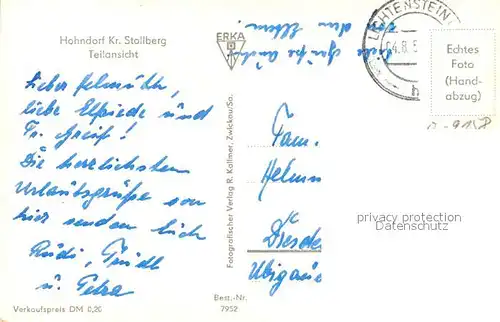 Hohndorf Kr. Stollberg
Teilansicht
Lieber Helmuth,
liebe Elfriede und
Fr. Greif!
Die herzlichsten
Urlaubsgrüße von
hier senden Euch
Rudi, Trudl
u. Petra
Verkaufspreis DM 0,26
ERKA
Fotografischer Verlag R. Kallmer, Zwickau/Sa.
Best.-Nr.
7952
LICHTENSTEIN
04.8.5
h
Echtes
Foto
(Hand-
abzug)
Fam.
Helmu
Dresde
Übigau
privacy protection
Datenschutz